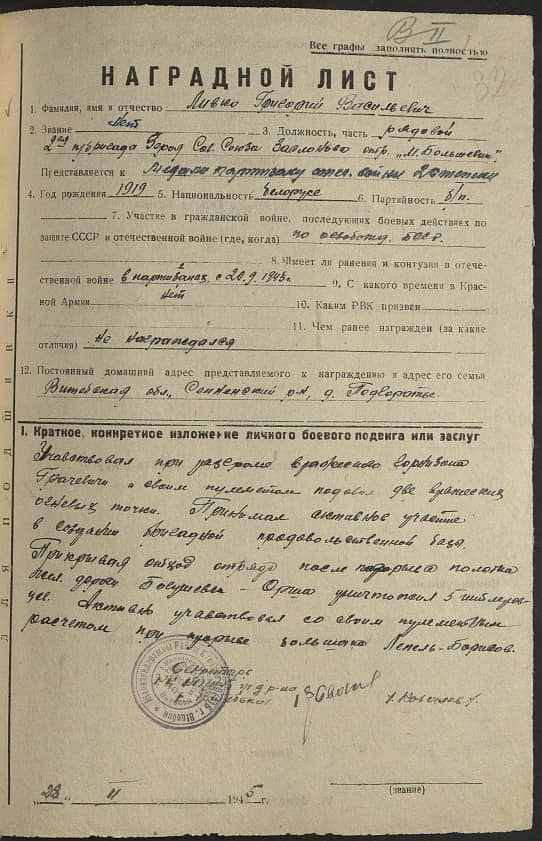 В II
Все графы заполнять полностью
32
НАГРАДНОЙ ЛИСТ
1. Фамилия, имя и отчество Ливко Григорий Васильевич
2. Звание нет 3. Должность, часть рядовой
отр. "М. Большевик"
Представляется к Медали партизану отеч. войны 2 степени
4. Год рождения 1919 5. Национальность Белорус 6. Партийность б/п.
7. Участие в гражданской войне, последующих боевых действиях по
защите СССР и отечественной войне (где, когда) по освобожд. БССР.
8. Имеет ли ранения и контузии в отече-
ственной войне в партизанах с 20.9.1943г 9. С какого времени в Крас-
ной Армии нет 10. Каким РВК призван
11. Чем ранее награжден (за какие
отличия) Не награждался
12. Постоянный домашний адрес представляемого к награждению и адрес его семьи
Витебская обл., Сенненский р-н, д.
I. Краткое, конкретное изложение личного боевого подвига или заслуг
Участвовал при разгроме вражеского гарнизона
и своим пулеметом подавил две вражеских
огневых точки. Принимал активное участие
в создании бригадной продовольственной базы.
Прикрывая отход отряда после подрыва полотна
жел. дороги Богушевск - Орша уничтожил 5 гитлеров-
цев. Активно участвовал со своим пулеметным
расчетом при взрыве большака Лепель-Борисов.
Секретарь
(звание)
"28" II 1945 г.
ДЛЯ ПОДШИВКИ